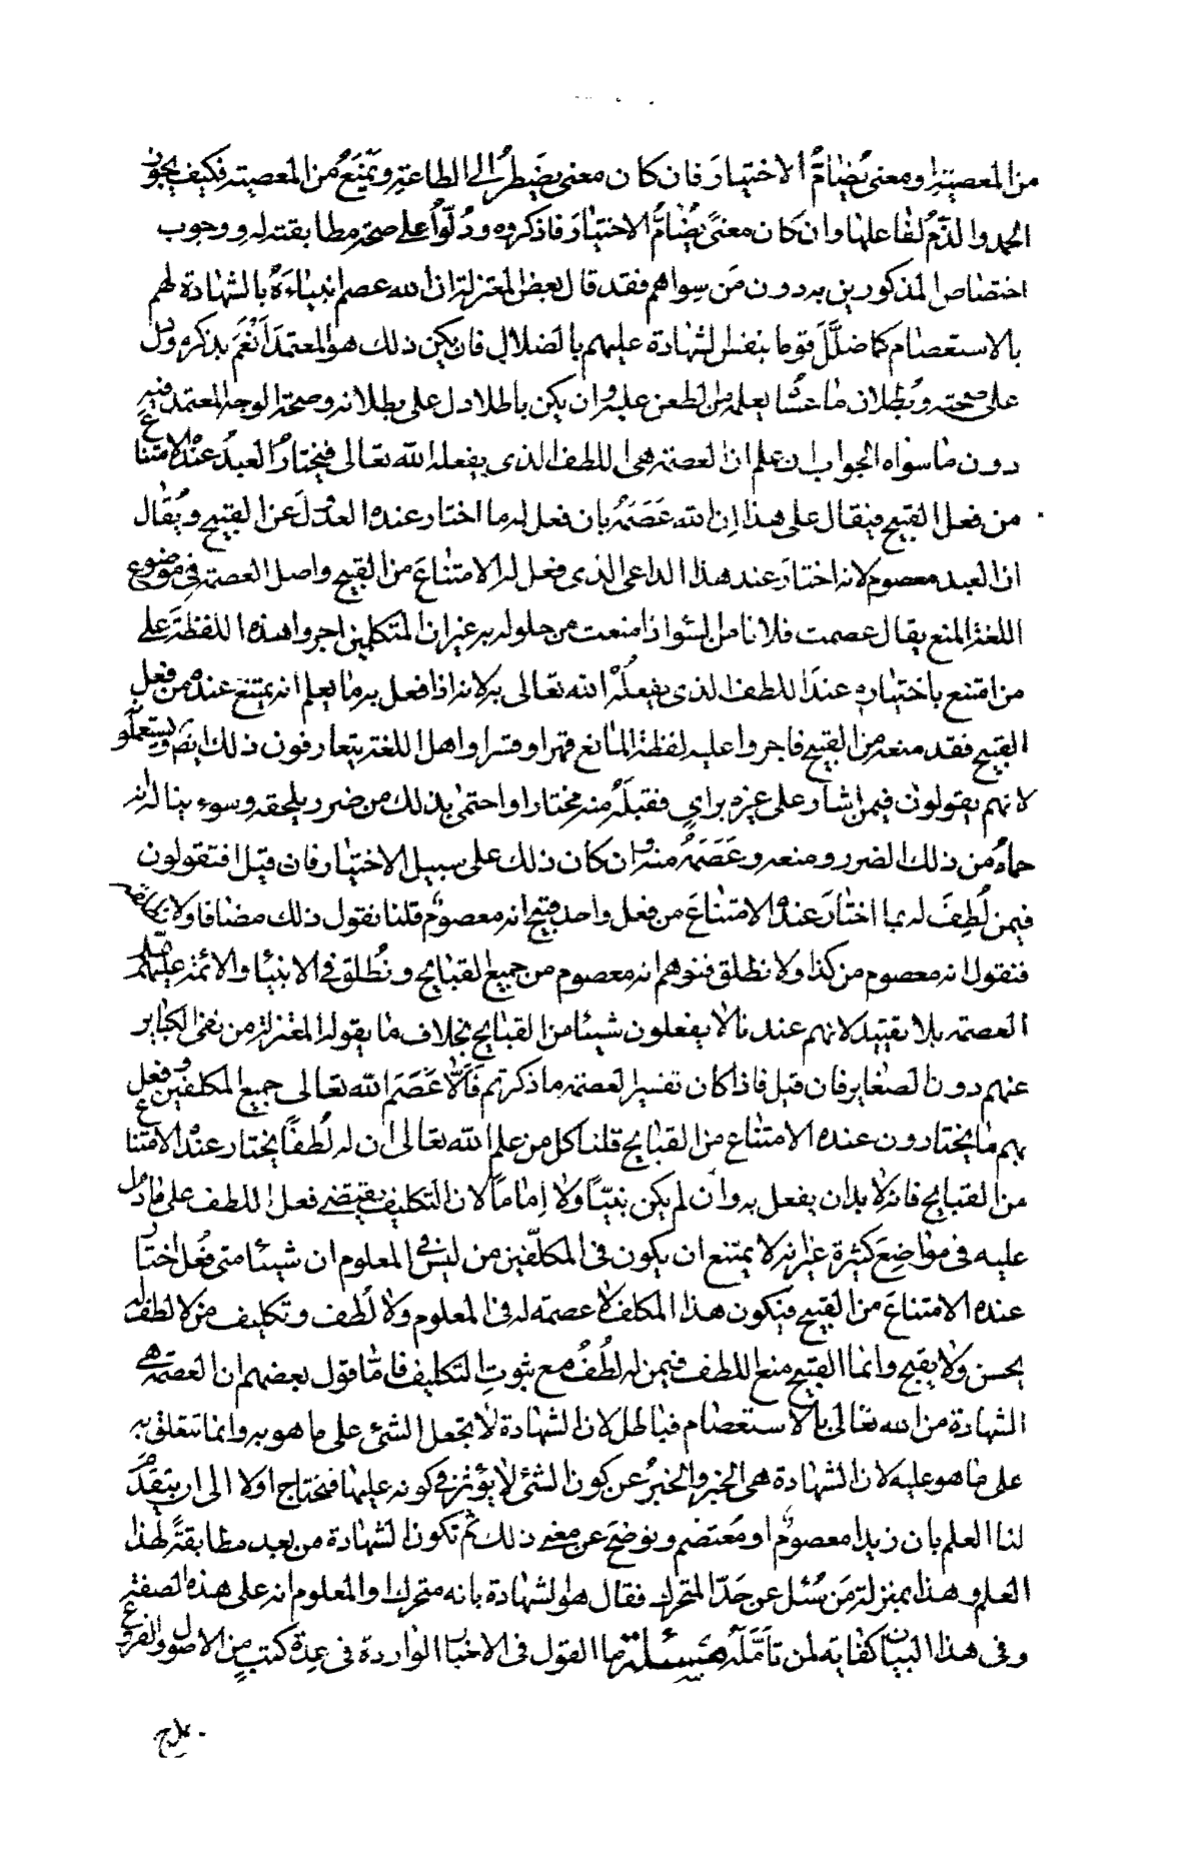 من المعصية او معنى يُضامُّ الاختيارَ فان كان معنى يضطرُّ الى الطاعة ويَمْنَعُ من المعصية فكيف يجوز
الحمد والذمّ لفاعلها وان كان معنىً يُضامُّ الاختيارَ فاذكروه ودُلّوا على صحة مطابقته له ووجوب
اختصاص المذكورين به دون مَن سواهم فقد قال بعض المعتزلة ان الله عصم انبياءَهُ بالشهادة لهم
بالاستعصام كما ضلَّلَ قوما بنفس الشهادة عليهم بالضلال فان يكن ذلك هو المعتمد اَنْعَمَ بذكره ودلَّ
على صحته وبُطلان ما عساه يعلم من الطعن عليه وان يكن باطلا دل على بطلانه وصحة الوجه المعتمد فيه
دون ما سواه الجواب ان علم ان العصمة هى اللطف الذى يفعله الله تعالى فيختارُ العبدُ عنده الامتناع
من فعل القبيح فيقال على هذا اِن الله عَصَمَهُ بان فعل له ما اختار عنده العدْلَ عن القبيح ويُقال
ان العبد معصوم لانه اختارَ عند هذا الداعى الذى فعل له الامتناعَ من القبيح واصل العصمة فى موضوع
اللغة المنع يقال عصمت فلانا من السُوء اذا منعت من حلوله به غير ان المتكلمين اجروا هذه اللفظةَ على
من امتنع باختيارِهِ عندَ اللطف الذى يفعلُهُ الله تعالى به لانه اذا فعل به ما يعلم انه يمتنع عنده من فعلِ
القبيح فقد منعه من القبيح فاجروا عليه لفظة المانع قهرا وقسرا واهل اللغة يتعارفون ذلك ايضا ويستعملو
لانهم يقولون فيمن اشار على غيره براىٍ فقبلَهُ منه مختارا واحتمى بذلك من ضرر يلحقه وسوء يناله انه
حماهُ من ذلك الضرر ومنعه وعَصَمَهُ منه وان كان ذلك على سبيل الاختيار فان قيل افتقولون
فيمن لُطِفَ له بما اختارَ عنده الامتناعَ من فعل واحد قبيح انه معصومٌ قلنا نقول ذلك مضافا ولا
فنقول انه معصوم من كذا ولا نطلق فنوهم انه معصوم من جميع القبايح ونُطلق فى الانبياء والائمة عليهم
العصمة بلا تقييد لانهم عندنا لا يفعلون شيئا من القبايح بخلاف ما يقوله المعتزلة من نفى الكباير
عنهم دون الصغاير فان قيل فاذا كان تفسير العصمة ما ذكرتم فَاَلّا عَصَمَ الله تعالى جميع المكلفين وفعل
بهم ما يختارون عنده الامتناع من القبايح قلنا كل من علم الله تعالى ان له لُطفًا يختار عنده الامتناع
من القبايح فانه لا بد ان يفعل به وان لم يكن نبيّاً ولا اِماماً لان التكليف يقتضى فعل اللطف على ما دل
عليه فى مواضِعَ كثيرة غير انه لا يمتنع ان يكون فى المكلّفين من ليس فى المعلوم ان شيئا متى فُعل اختار
عنده الامتناعَ من القبيح فيكون هذا المكلف لا عصمة له فى المعلوم ولا لُطف وتكليف من لا لطف له
يحسن ولا يقبح وانما القبيح منع اللطف فيمن له لُطفٌ مع ثبوتِ التكليف فامّا قول بعضهم ان العصمة هى
الشهادة من الله تعالى بالاستعصام فباطل لان الشهادة لا تجعل الشئ على ما هو به وانما تتعلق به
على ما هو عليه لان الشهادة هى الخبر والخبرُ عن كون الشئ لا يؤثر فى كونه عليها فنحتاج اولا الى ان يتقدَّمَ
لنا العلم بان زيدا معصومٌ او مُعتصم ونوضحَ عن معنى ذلك ثم تكون الشهادة من بعد مطابقةً لهذا
العلم وهذا بمنزلة مَن سُئل عن حَدّ المتحرك فقال هو الشهادة بانه متحرك او المعلوم انه على هذه الصفة
وفى هذا البيان كفاية لمن تأمَّلَهُ مسئلة ما القول فى الاخبار الواردة فى عدة كتب من الاصول والفروع